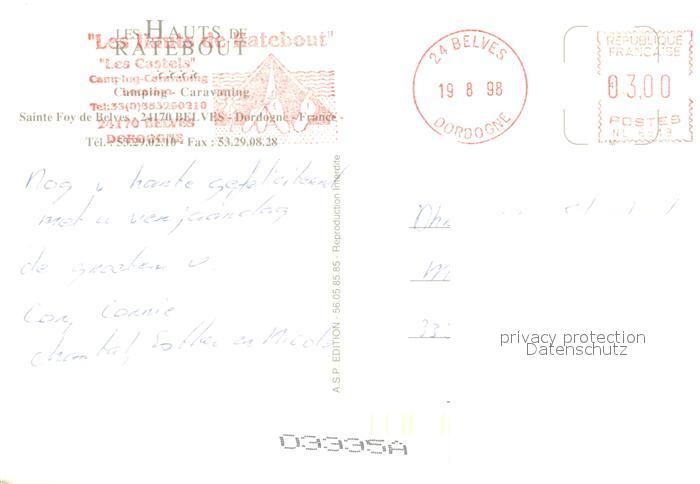 LES HAUTS DE
RATEBOUT
****
Camping - Caravaning
Sainte Foy de Belves - 24170 BELVES - Dordogne - France -
Tél. : 53.29.02.10 - Fax : 53.29.08.28
"Les Hauts de Ratebout"
"Les Castels"
Camping-Caravaning
Tel:33(0)553290210
24170 BELVES
DORDOGNE
24 BELVES
19 8 98
DORDOGNE
REPUBLIQUE
FRANCAISE
03,00
POSTES
Nog u harte gefeliciteerd
met u verjaardag
de groeten v.
Cor, Corrie
Chantal, Esther en Nicole
A.S.P. EDITION - 56.05.85.85 - Reproduction interdite
Dhr
privacy protection
Datenschutz
D3335A